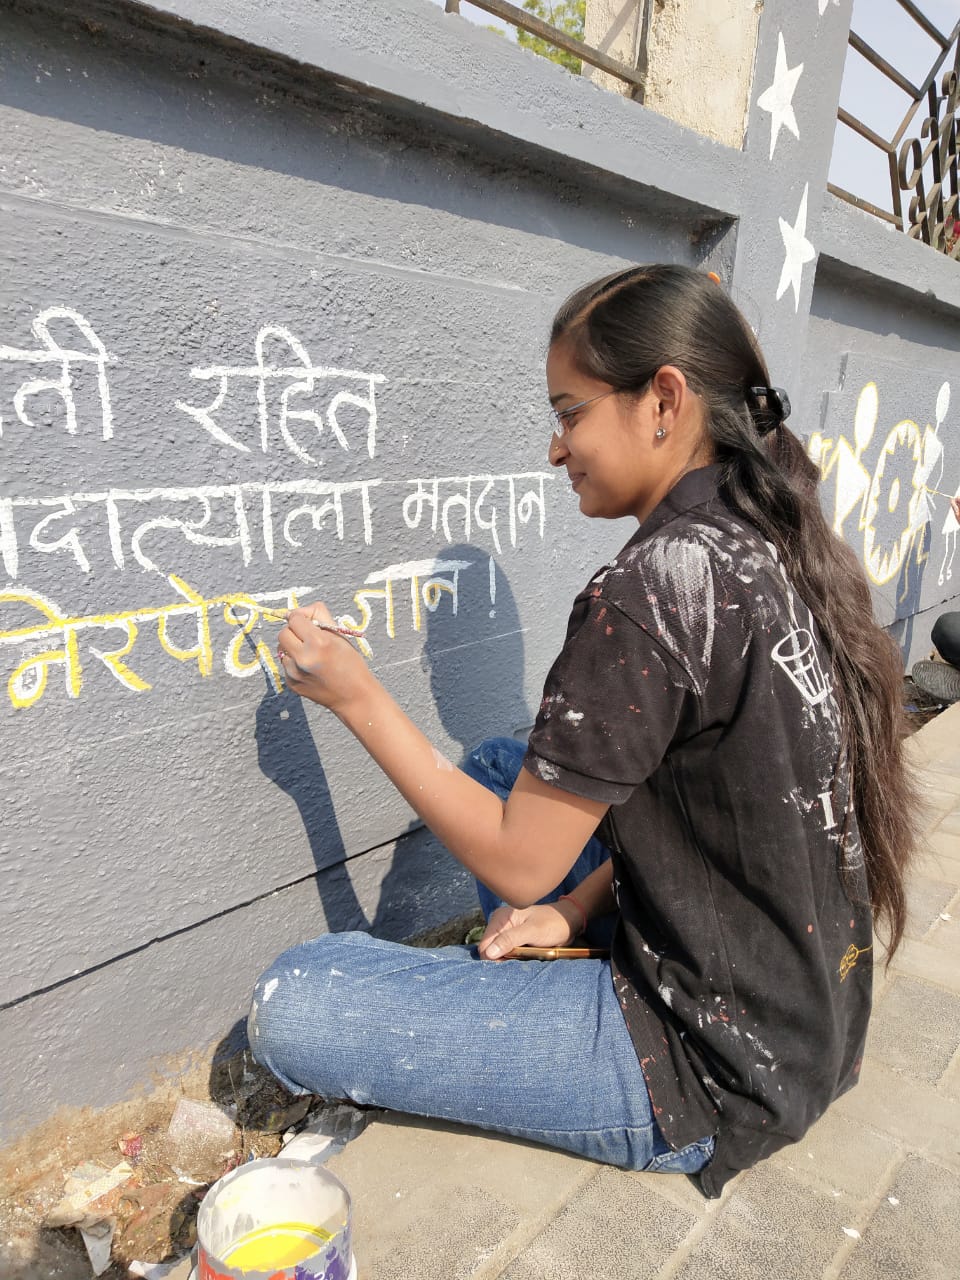 ती रहित
दात्याला मतदान
निरपेक्ष जान!
I